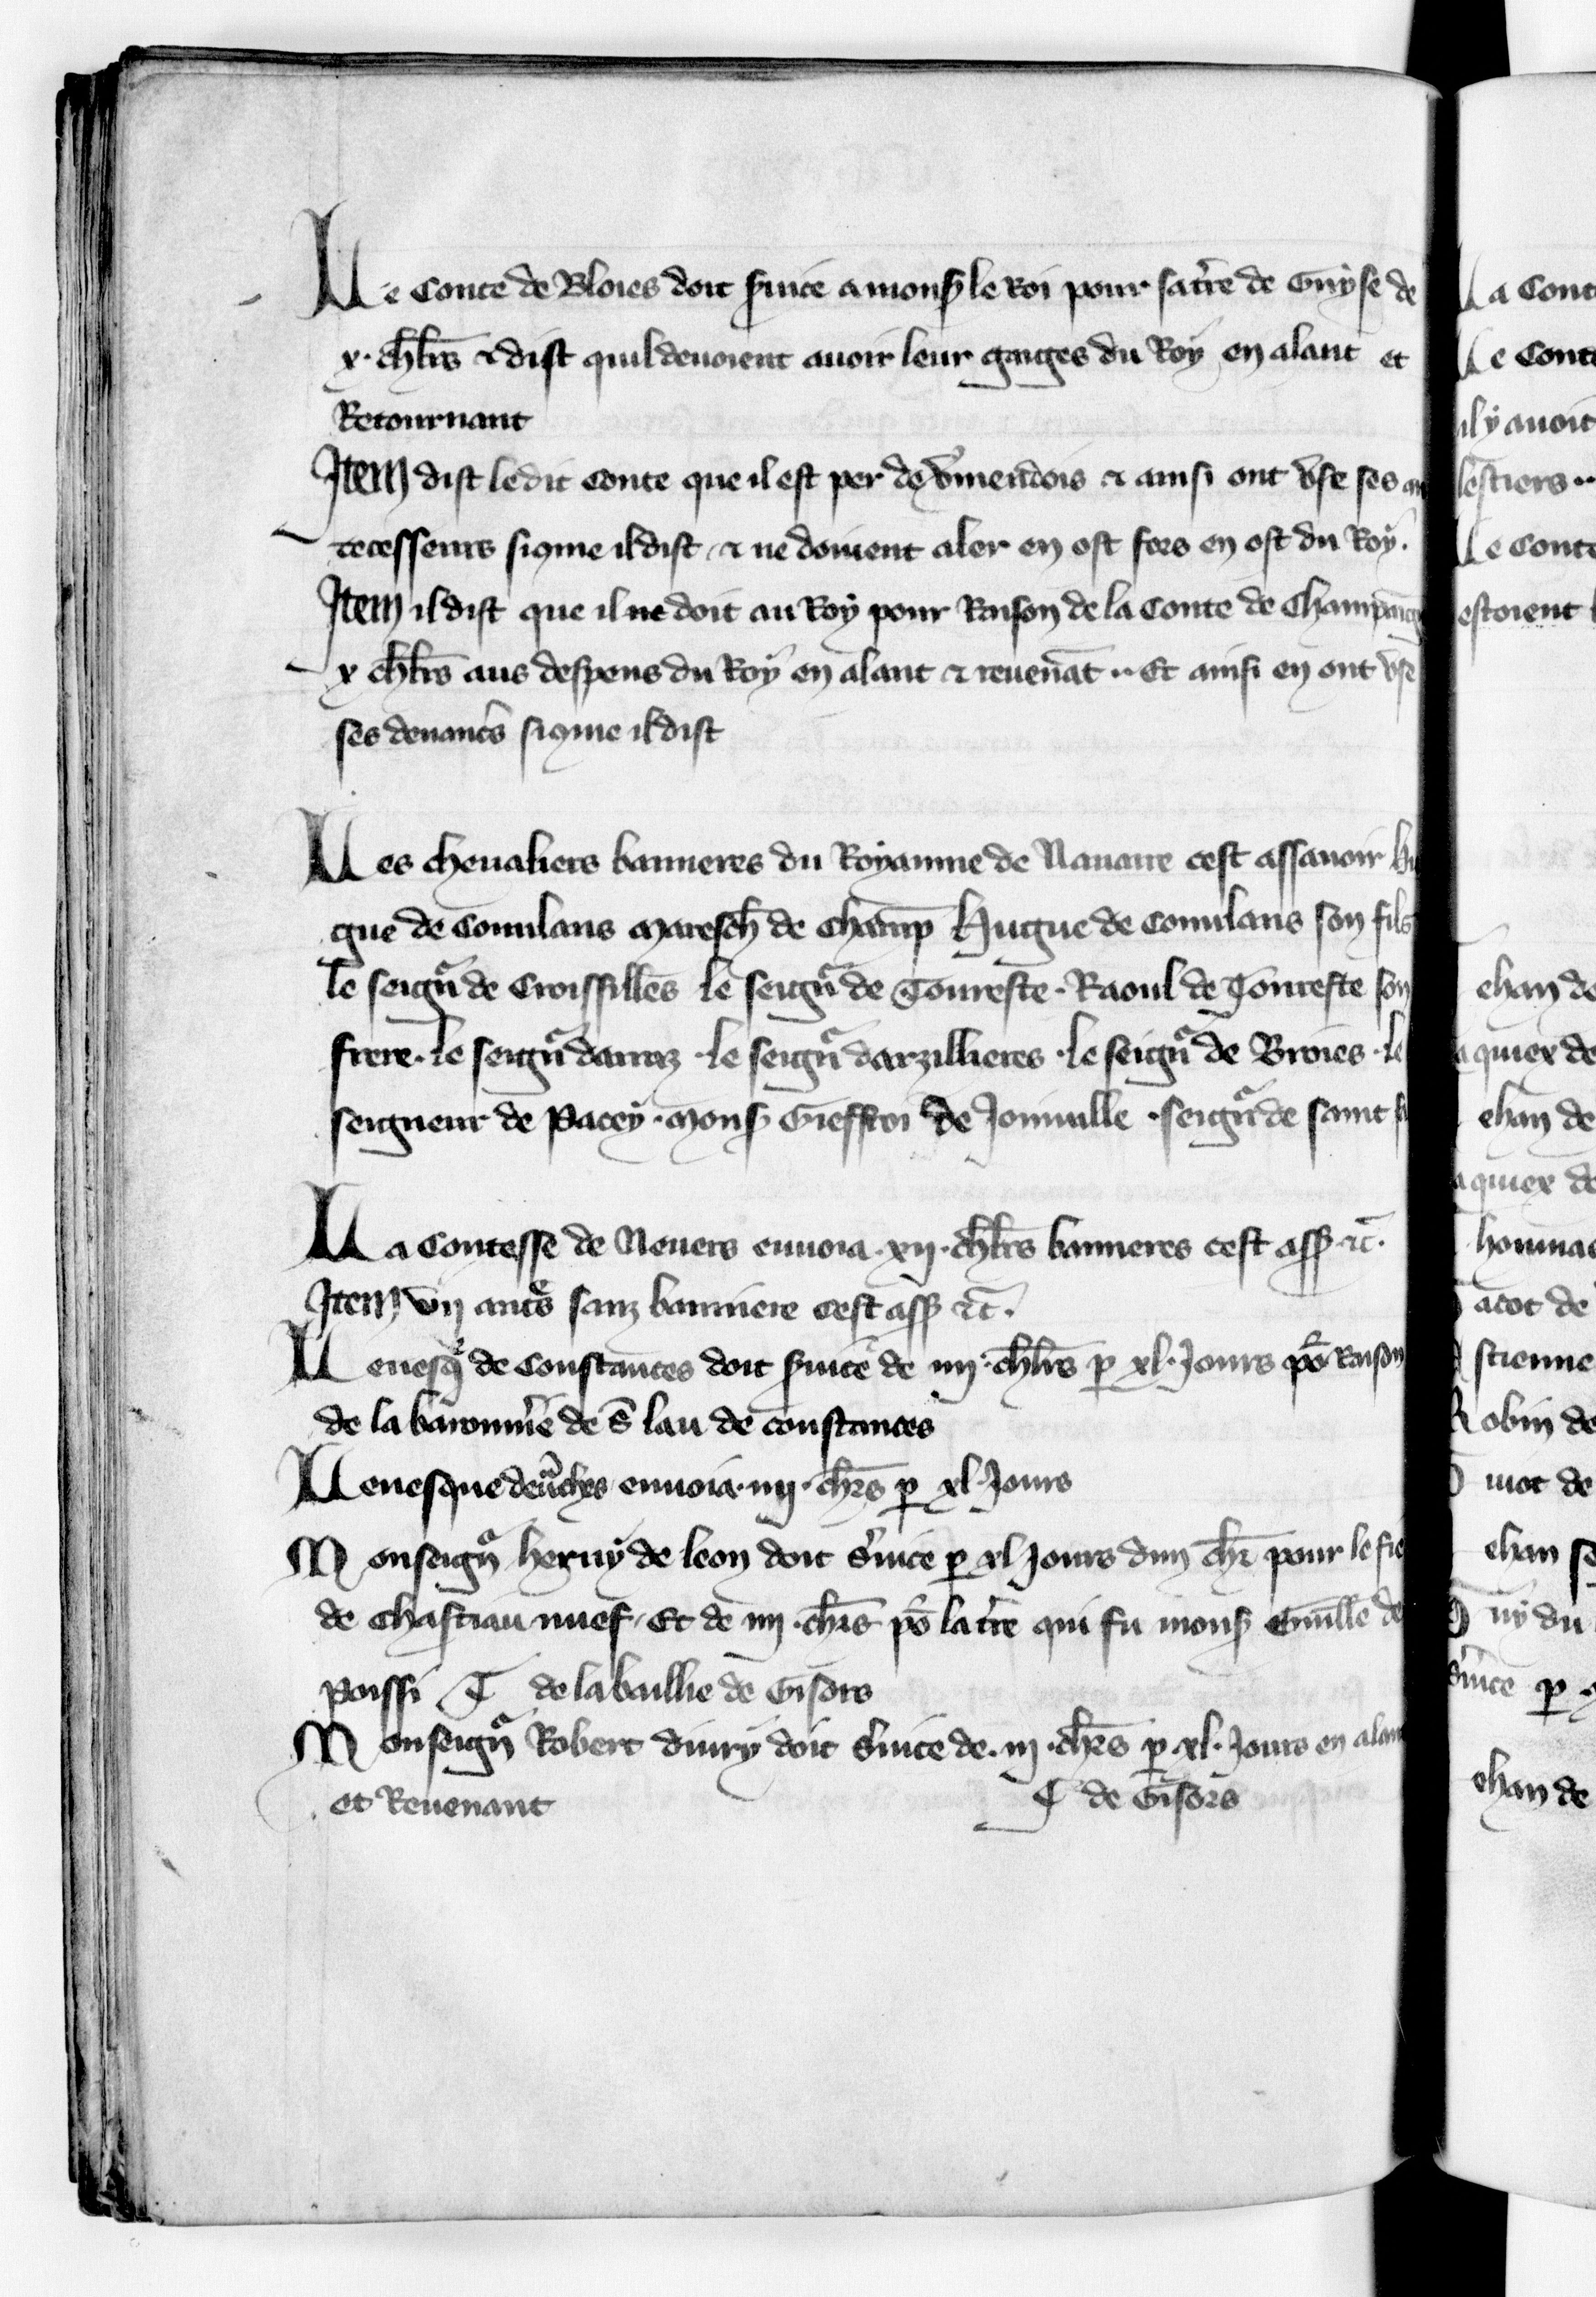 Le Conte de Bloies doit s̃uice a mons̃ le Roi pour sa t̃re de Guyse de
x. ch̃lrs & dist quil deuoient auoir leur gaiges du Roy en alant et
Retournant
Item dist ledit conte que il est per de v̾mendois & ainsi ont vse ses an
tecesseurs si ꝯme il dist & ne doiuent aler en ost fors en ost du Roy.
Item il dist que il ne doit au Roy pour Raison de la Conte de Champaig̃
x ch̃lrs aus despens du Roy en alant & reuen̄at ·· Et ainsi en ont vse
ses deuanc̃s si ꝯme il dist
Les cheualiers banneres du Royaume de Nauarre cest assauoir Hu
gue de Conulans maresch̃ de Champ̃ Hugue de Conulans son fils
le seign̾r de Croissilles le seign̾r de Toureste · Raoul de Toureste son
frere · le seign̾r darrez · le seign̾r darzillieres · le seign̾r de Broies · le
seigneur de Pacey · Mons̃ Gieffroi de Joinuille · seign̾r de saint
La Contesse de Neuers enuoia · xij · ch̃lrs banneres cest ass̃ &c̃.
Item vij aut̾s sanz banniere cest ass̃ &c̃.
Leuesq̾ de Constances doit s̃uice de iiij · ch̃lrs p̱ xl · Jours po̾ Raison
de la baronnie de S̃ lau de constances
Leuesque deurͣches enuoia · iiij · ch̃rs p̱ xl · Jours
Monseign̾r heruy de leon doit s̾uice p̱ xl Jours dun ch̃r pour le fie
de Chastiau nuef · Et de iiij · ch̃rs po̾ la t̃re qui fu mons̃ Guill̃e de
poissi T̃ de la baillie de Gisors
Monseign̾r Robert diury doit s̾uice de · iij · ch̃rs p̱ xl · Jours en alant
et Reuenant T̃ de Gisors
La Cont
Le Conte
il y auoit
lestiers ··
Le Conte
estoient
ehan de
aquiex de
ehan de
aquiex de
hommaā
acot de
stienne
Robin de
uiot de
ehan se
uy du
s̾uice p̱
ehan de